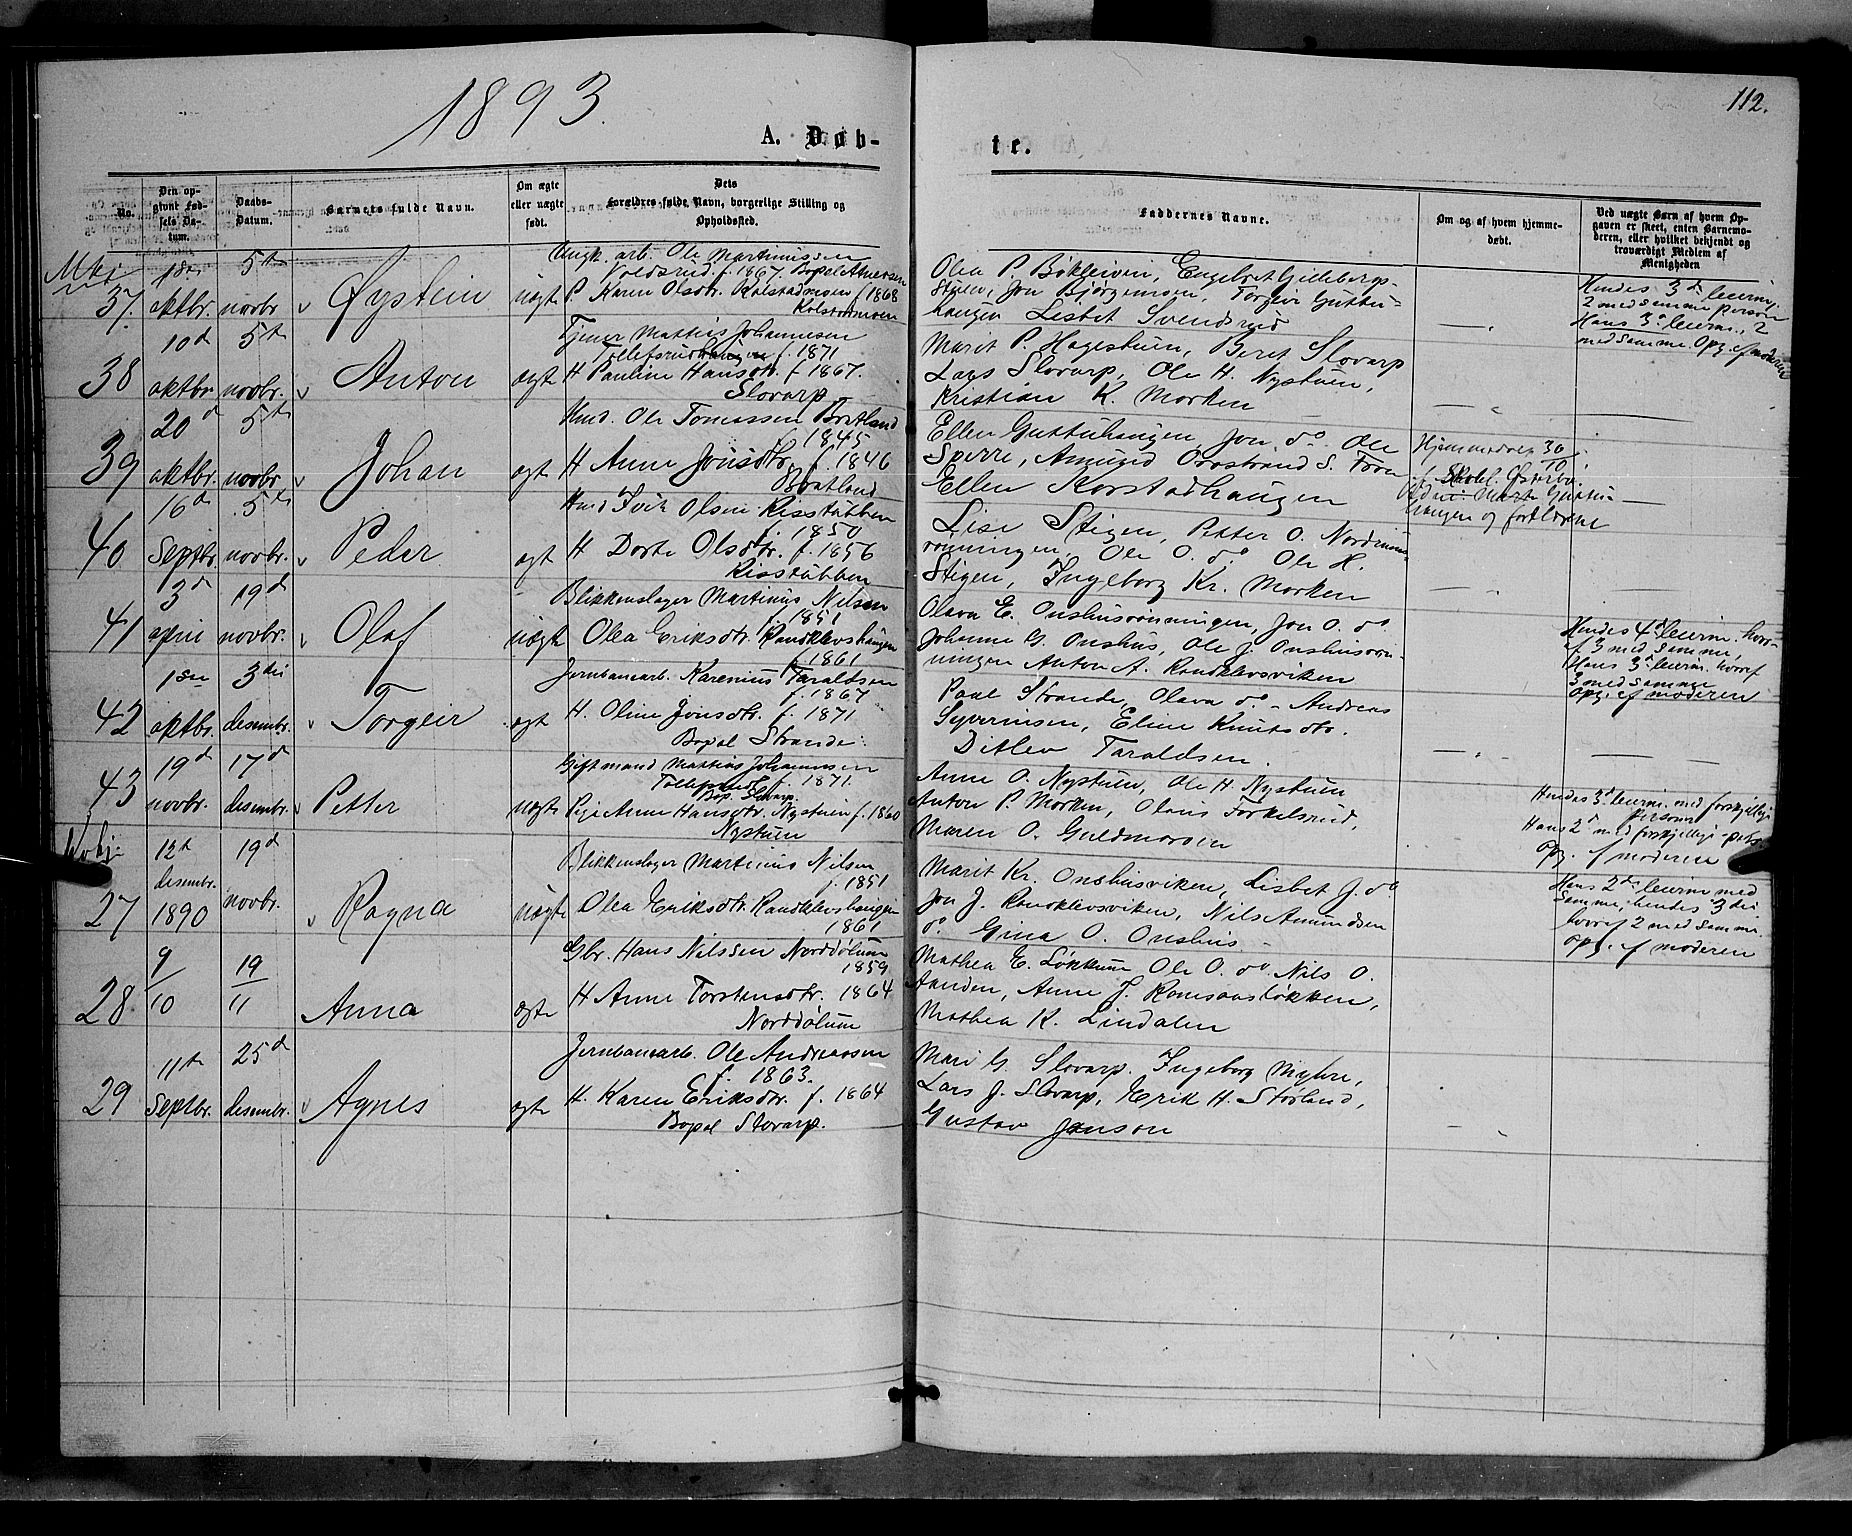 1893.
112.
A. Døb-
te.
No.
Den op-
givne Fød-
sels Da-
tum.
Daabs-
Datum.
Barnets fulde Navn.
Om ægte
eller uægte
født.
Dets
Forældres fulde Navn, borgerlige Stilling og
Opholdssted.
Faddernes Navne.
Om og af hvem hjemme-
døbt.
Ved uægte Børn af hvem Op-
gaven er skeet, enten Barnemo-
deren, eller hvilket bekjendt og
troværdigt Medlem af
Menigheden
37. oktbr. 5te novbr Øystein uægte
Ungk. arb. Ole Martinussen
Voldsrud f. 1867.
P. Karen Olsdtr. Kolstadmoen f 1868
Kolstadmoen
Olea P. Bøkleiven, Engebret Gilleberg-
stuen, Jon Bjørgemoen, Torgeir Guttu-
haugen Lisbet Svendsrud
Hendes 3d leierm.
2 med samme person
Hans 3d leierm., 2
med samme. Opg. af moderen
38 10d oktbr. 5te novbr. Anton ægte
Tjener Mathis Johannesen
Tollefsrudhaugen f. 1871
H Pauline Hansdtr. f 1867.
Slovarp
Marit P. Hageshuen, Beret Slovarp
Lars Slovarp, Ole H. Nystuen,
Kristian K. Morken
39 20d oktbr. 5te novbr Johan ægt
Ole Tomassen Bratland
f. 1845
H Anne Jonsdtr. f. 1846
Bratland
Ellen Guttuhaugen, Jon do. Ole
Sperre, Amund
Ellen Korstadhaugen
Hjemmedøbt 30/10
haugen og forældrene
40 16d Septbr. 5te novbr. Peder ægt
Olsen Risstubben
f. 1850
H Dorte Olsdtr. f. 1856
Risstubben
Lise Stigen, Petter O. Nordrum-
rønningen, Ole O. do Ole H.
Stigen, Ingeborg Kr. Morken
41 3d april 19d novbr. Olaf uægte
Blikkenslager Martinus Nilsen
f. 1851
Olea Eriksdtr. Randklevshaugen
1861
Olava E. Onshusrønningen, Jon O. do
Johanne G. Onshus, Ole J. Onshusrøn-
ningen Anton A. Randklevsviken
Hendes 4d leierm. hvor-
af 3 med samme,
Hans 3d leierm. hvoraf
3 med samme
Opg. af moderen
42 1ste oktbr. 3die desembr. Torgeir ægt
Jernbanearb. Karenius Taraldsen
f. 1867
H. Oline Jonsdtr. f. 1871
Bopæl Strande.
Paul Strande, Olava do - Andreas
Syverinsen, Eline Knutsdtr.
Ditlev Taraldsen.
43 19d novbr. 17d desembr. Petter uægte
Giftmand Mathias Johannesen
Tollefsrud f. 1871.
Bop. Slovarp.
Pige Anne Hansdtr. Nystuen f. 1860
Nystuen
Anne O. Nystuen, Ole H. Nystuen
Anton P. Morken, Olaus Torkelsrud,
Maren O. Guldmoroen
Hendes 3d leierm. med forskjellige
personer
Hans 2d med forskjellige pers.
Opg. af moderen
27 12te desembr. 1890 19d novbr. Ragna uægte
Blikkenslager Martinus Nilsen
f. 1851
Olea Eriksdtr. Randklevshaugen
1861
Marit Kr. Onshusviken, Lisbet J. do
Jon J. Randklevsviken, Nils Amundsen
do. Gina O. Onshus -
Hans 2d leierm med
samme, hendes 3die
hvoraf 2 med samme.
Opg. af moderen
28. 9/10 19/11 Anna ægte
Gbr. Hans Nilssen Norddølum
1859
H Anne Torstensdtr. 1864
Norddølum
Mathea E. Løkkum Ole O. do Nils O.
Aanden, Anne J. Romsaasløkken,
Mathea K. Lindalen
29 11te Septbr. 25d desembr. Agnes ægte
Jernbanearb. Ole Andreassen
f. 1863.
H. Karen Eriksdtr. f. 1864
Bopæl Slovarp.
Mari G Slovarp. Ingeborg Myhre,
Lars J. Slovarp, Erik H. Størlund,
Gustav Janson